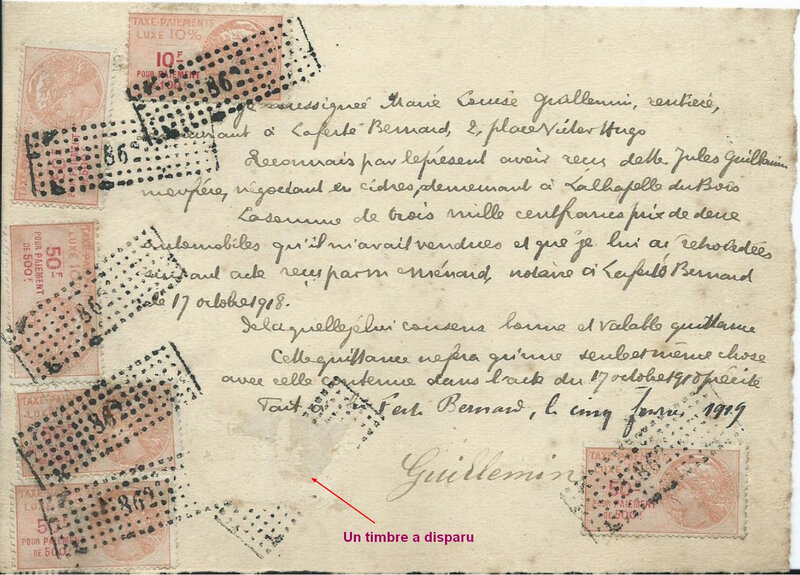 TAXE-PAIEMENTS
LUXE 10%
10F
POUR PAIEMENT
862
Je soussignée Marie Louise Guillemin, rentière,
demeurant à Laferté Bernard, 2, place Victor Hugo
862
Reconnais par leprésent avoir reçu de Mr Jules Guillemin
monfrère, négociant en cidres, demeurant à LaChapelle du Bois
Lasomme de trois mille centfrancs prix de deux
automobiles qu'il m'avait vendues et que je lui ai rétrocédées
suivant acte reçu par Me Ménard, notaire à Laferté Bernard
le 17 octobre 1918.
TAXE-PAIEMENTS
LUXE 10
50F
POUR PAIEMENT
DE 500F
862
delaquelle je lui consens bonne et valable quittance
Cette quittance nefera qu'une seule et même chose
avec celle contenue dans l'acte du 17 octobre 1918 précité
Fait à Ferté Bernard, le cinq février 1919
862
Guillemin
TAXE-PAIEMENTS
862
POUR PAIEMENT
DE 500F
862
TAXE-PAIEMENTS
POUR PAIEMENT
DE 500F
Un timbre a disparu